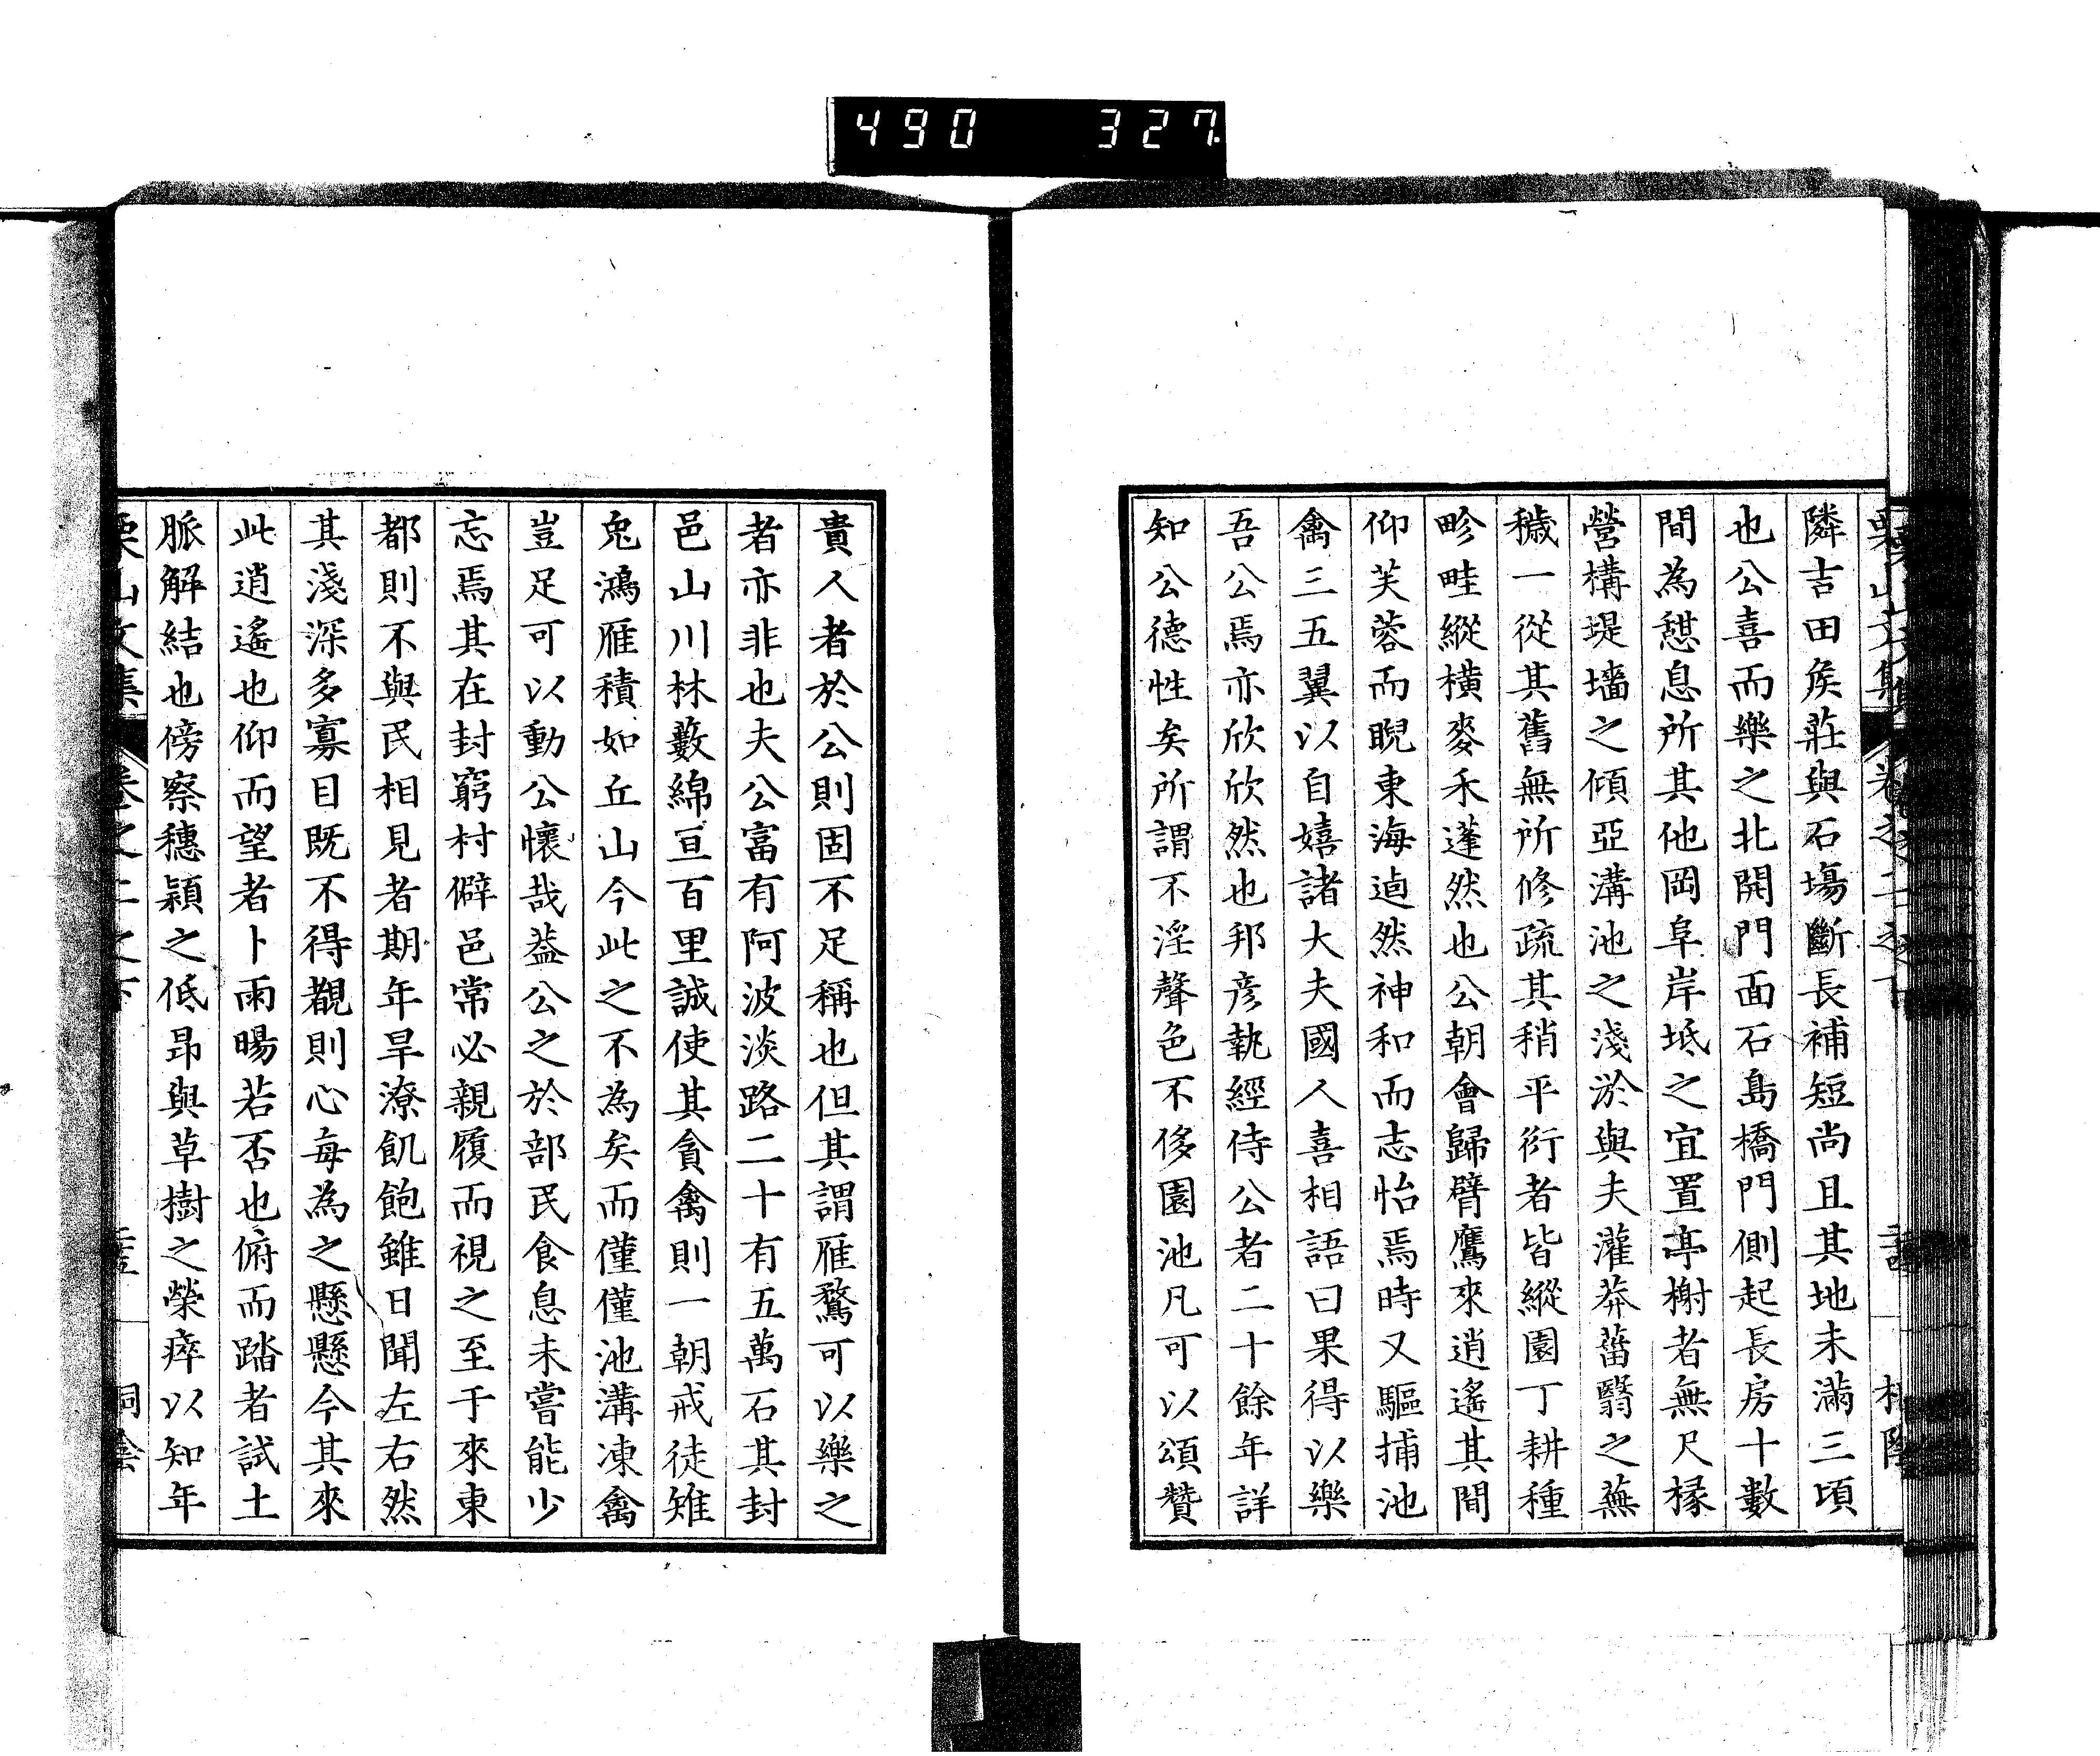 490 327
隣吉田矦莊與石塲斷長補短尚且其地未滿三頃
也公喜而樂之北開門面石島橋門側起長房十數
間為憇息所其他岡阜岸坻之宜置亭榭者無尺椽
營構堤墻之傾亞溝池之淺淤與夫灌莽菑翳之蕪
穢一從其舊無所修疏其稍平衍者皆縱園丁耕種
畛畦縱橫麥禾蓬然也公朝會歸臂鷹來逍遙其間
仰芙蓉而睨東海逌然神和而志怡焉時又驅捕池
禽三五翼以自嬉諸大夫國人喜相語曰果得以樂
吾公焉亦欣欣然也邦彦執經侍公者二十餘年詳
知公德性矣所謂不淫聲色不侈園池凡可以頌贊
貴人者於公則固不足稱也但其謂雁鶩可以樂之
者亦非也夫公富有阿波淡路二十有五萬石其封
邑山川林藪綿亘百里誠使其貪禽則一朝戒徒雉
兎鴻雁積如丘山今此之不為矣而僅僅池溝凍禽
豈足可以動公懷哉葢公之於部民食息未嘗能少
忘焉其在封窮村僻邑常必親履而視之至于來東
都則不與民相見者期年旱潦飢飽雖日聞左右然
其淺深多寡目既不得覩則心每為之懸懸今其來
此逍遙也仰而望者卜雨暘若否也俯而踏者試土
脈解結也傍察穗穎之低昻與草樹之榮瘁以知年
栗山文集 卷之二之下